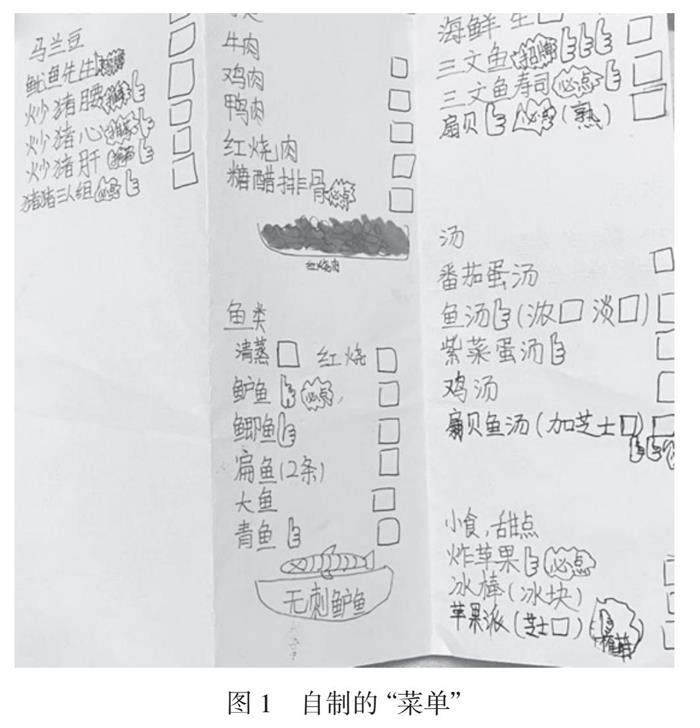 马兰豆
鱿鱼先生
炒猪腰 招牌
炒猪心 招牌
炒猪肝 招牌
猪猪三人组 必点
牛肉
鸡肉
鸭肉
红烧肉
糖醋排骨 必点
红烧肉
鱼类
清蒸 红烧
鲈鱼 必点
鲫鱼
扁鱼(2条)
大鱼
青鱼
无刺鲈鱼
海鲜 生
三文鱼 招牌
三文鱼寿司 必点
扇贝 必点 (熟)
汤
番茄蛋汤
鱼汤 (浓 淡)
紫菜蛋汤
鸡汤
扇贝鱼汤(加芝士)
小食,甜点
炸苹果 必点
冰棒(冰块)
苹果派(芝士)
图1 自制的“菜单”